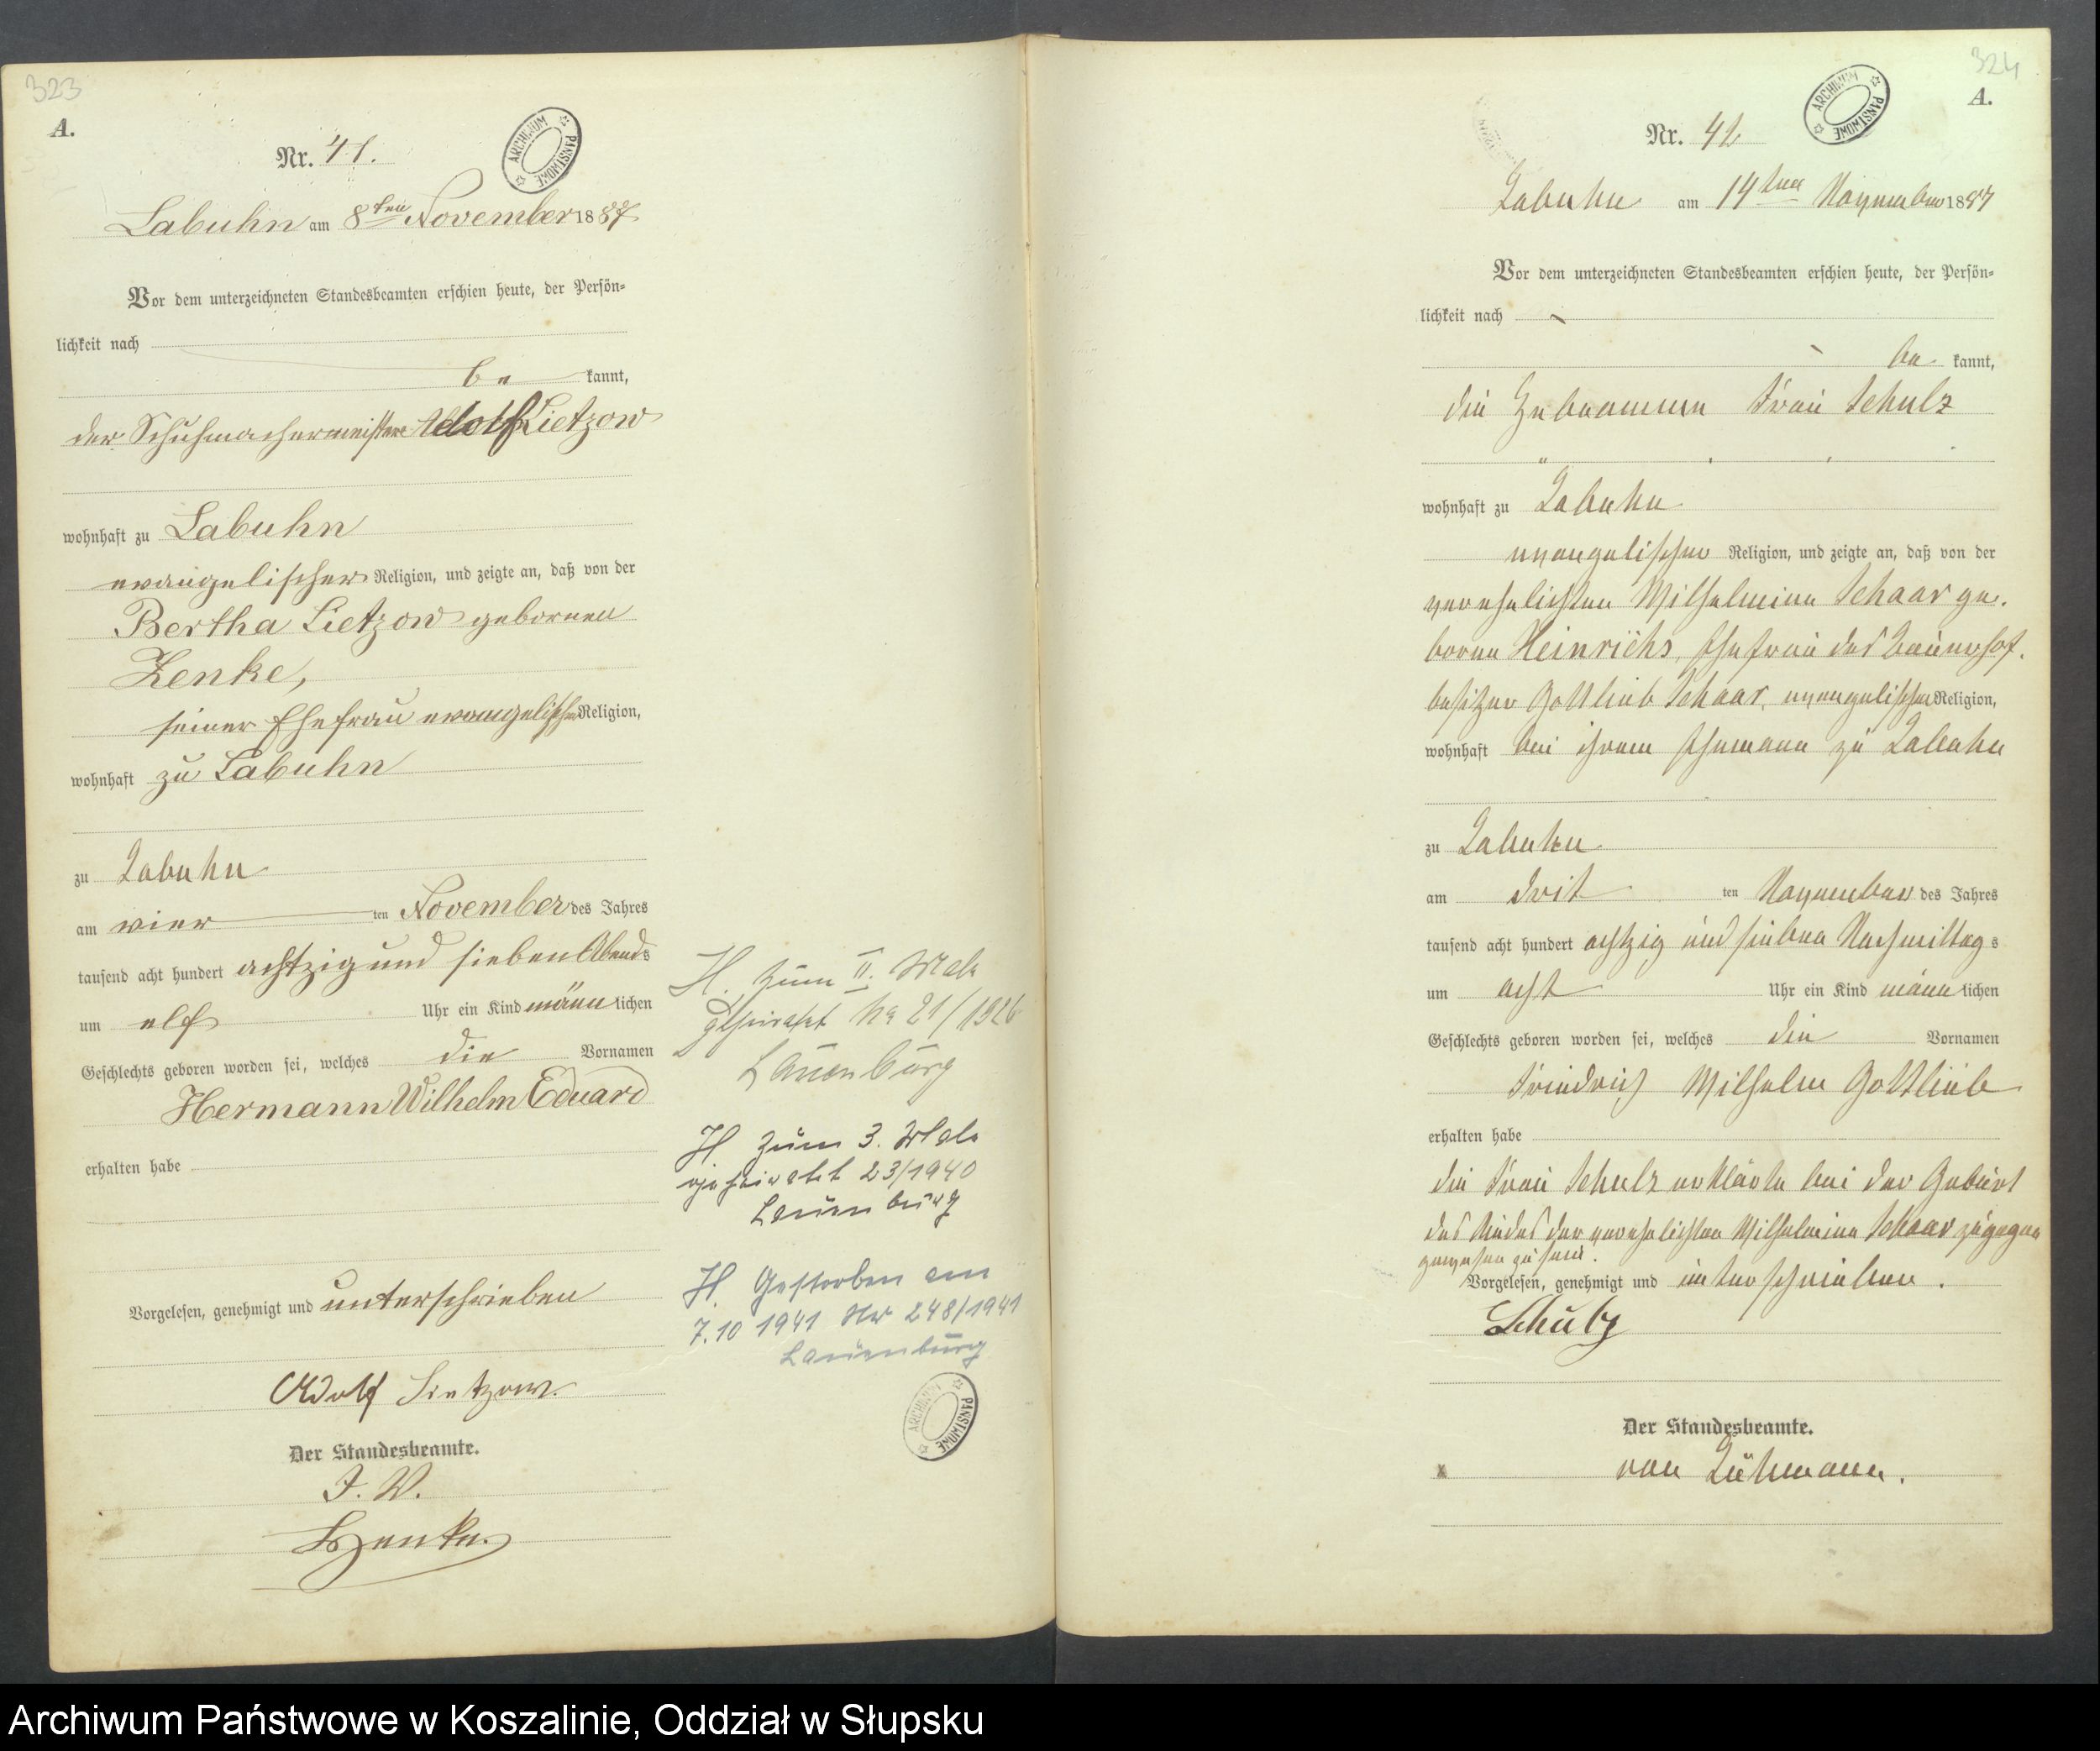 323
A.
Nr. 41.
ARCHIWUM PAŃSTWOWE
Labuhn am 8ten November 1887
Vor dem unterzeichneten Standesbeamten erschien heute, der Persön-
lichkeit nach
be kannt,
der Schuhmachermeister Adolf Lietzow
wohnhaft zu Labuhn
evangelischer Religion, und zeigte an, daß von der
Bertha Lietzow gebornen
Zenke,
seiner Ehefrau evangelischer Religion,
wohnhaft zu Labuhn
zu Labuhn
am vier ten November des Jahres
tausend acht hundert achtzig und sieben Abends
um elf Uhr ein Kind männlichen
Geschlechts geboren worden sei, welches die Vornamen
Hermann Wilhelm Eduard
erhalten habe
Vorgelesen, genehmigt und unterschrieben
Adolf Lietzow.
Der Standesbeamte.
I. V.
H. zum II. Male
geheiratet No 21/1926
Lauenburg
H zum 3. Male
geheiratet 23/1940
Lauenburg
H. Gestorben am
7.10 1941 Nr 248/1941
Lauenburg
ARCHIWUM PAŃSTWOWE
324
A.
Nr. 42
ARCHIWUM PAŃSTWOWE
Labuhn am 14ten November 1887
Vor dem unterzeichneten Standesbeamten erschien heute, der Persön-
lichkeit nach
be kannt,
die Hebeamme Frau Schulz
wohnhaft zu Labuhn
evangelischer Religion, und zeigte an, daß von der
verehelichten Wilhelmine Schaar ge-
borne Heinrichs, Ehefrau des Bauerhof-
besitzer Gottlieb Schaar, evangelischer Religion,
wohnhaft bei ihrem Ehemann zu Labuhn
zu Labuhn
am drit ten November des Jahres
tausend acht hundert achtzig und sieben Nachmittags
um acht Uhr ein Kind männlichen
Geschlechts geboren worden sei, welches die Vornamen
Friedrich Wilhelm Gottlieb
erhalten habe
die Frau Schulz erklärte bei der Geburt
des Kindes der verehelichten Wilhelmine Schaar zugegen
gewesen zu sein.
Vorgelesen, genehmigt und unterschrieben.
Schulz
Der Standesbeamte.
von Lühmann.
Archiwum Państwowe w Koszalinie, Oddział w Słupsku